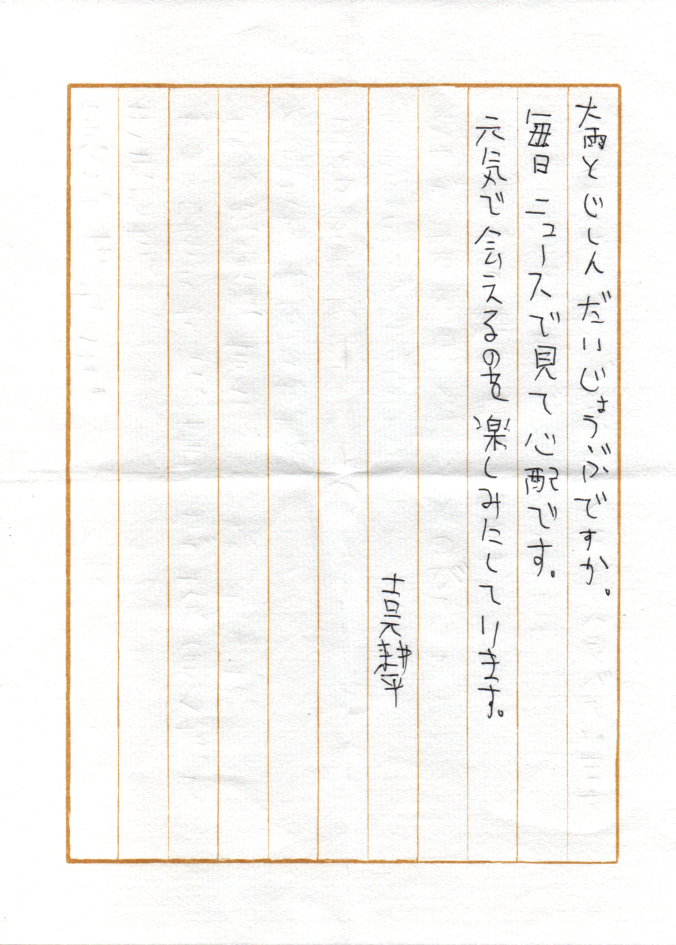 大雨と じしん だいじょうぶですか。
毎日 ニュースで見て 心配です。
元気で 会えるのを 楽しみにしています。
吉元耕平